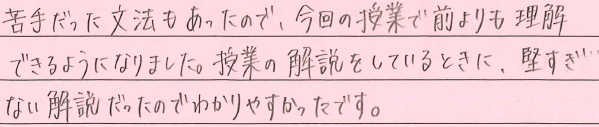 苦手だった文法もあったので、今回の授業で前よりも理解
できるようになりました。授業の解説をしているときに、堅すぎ
ない解説だったのでわかりやすかったです。